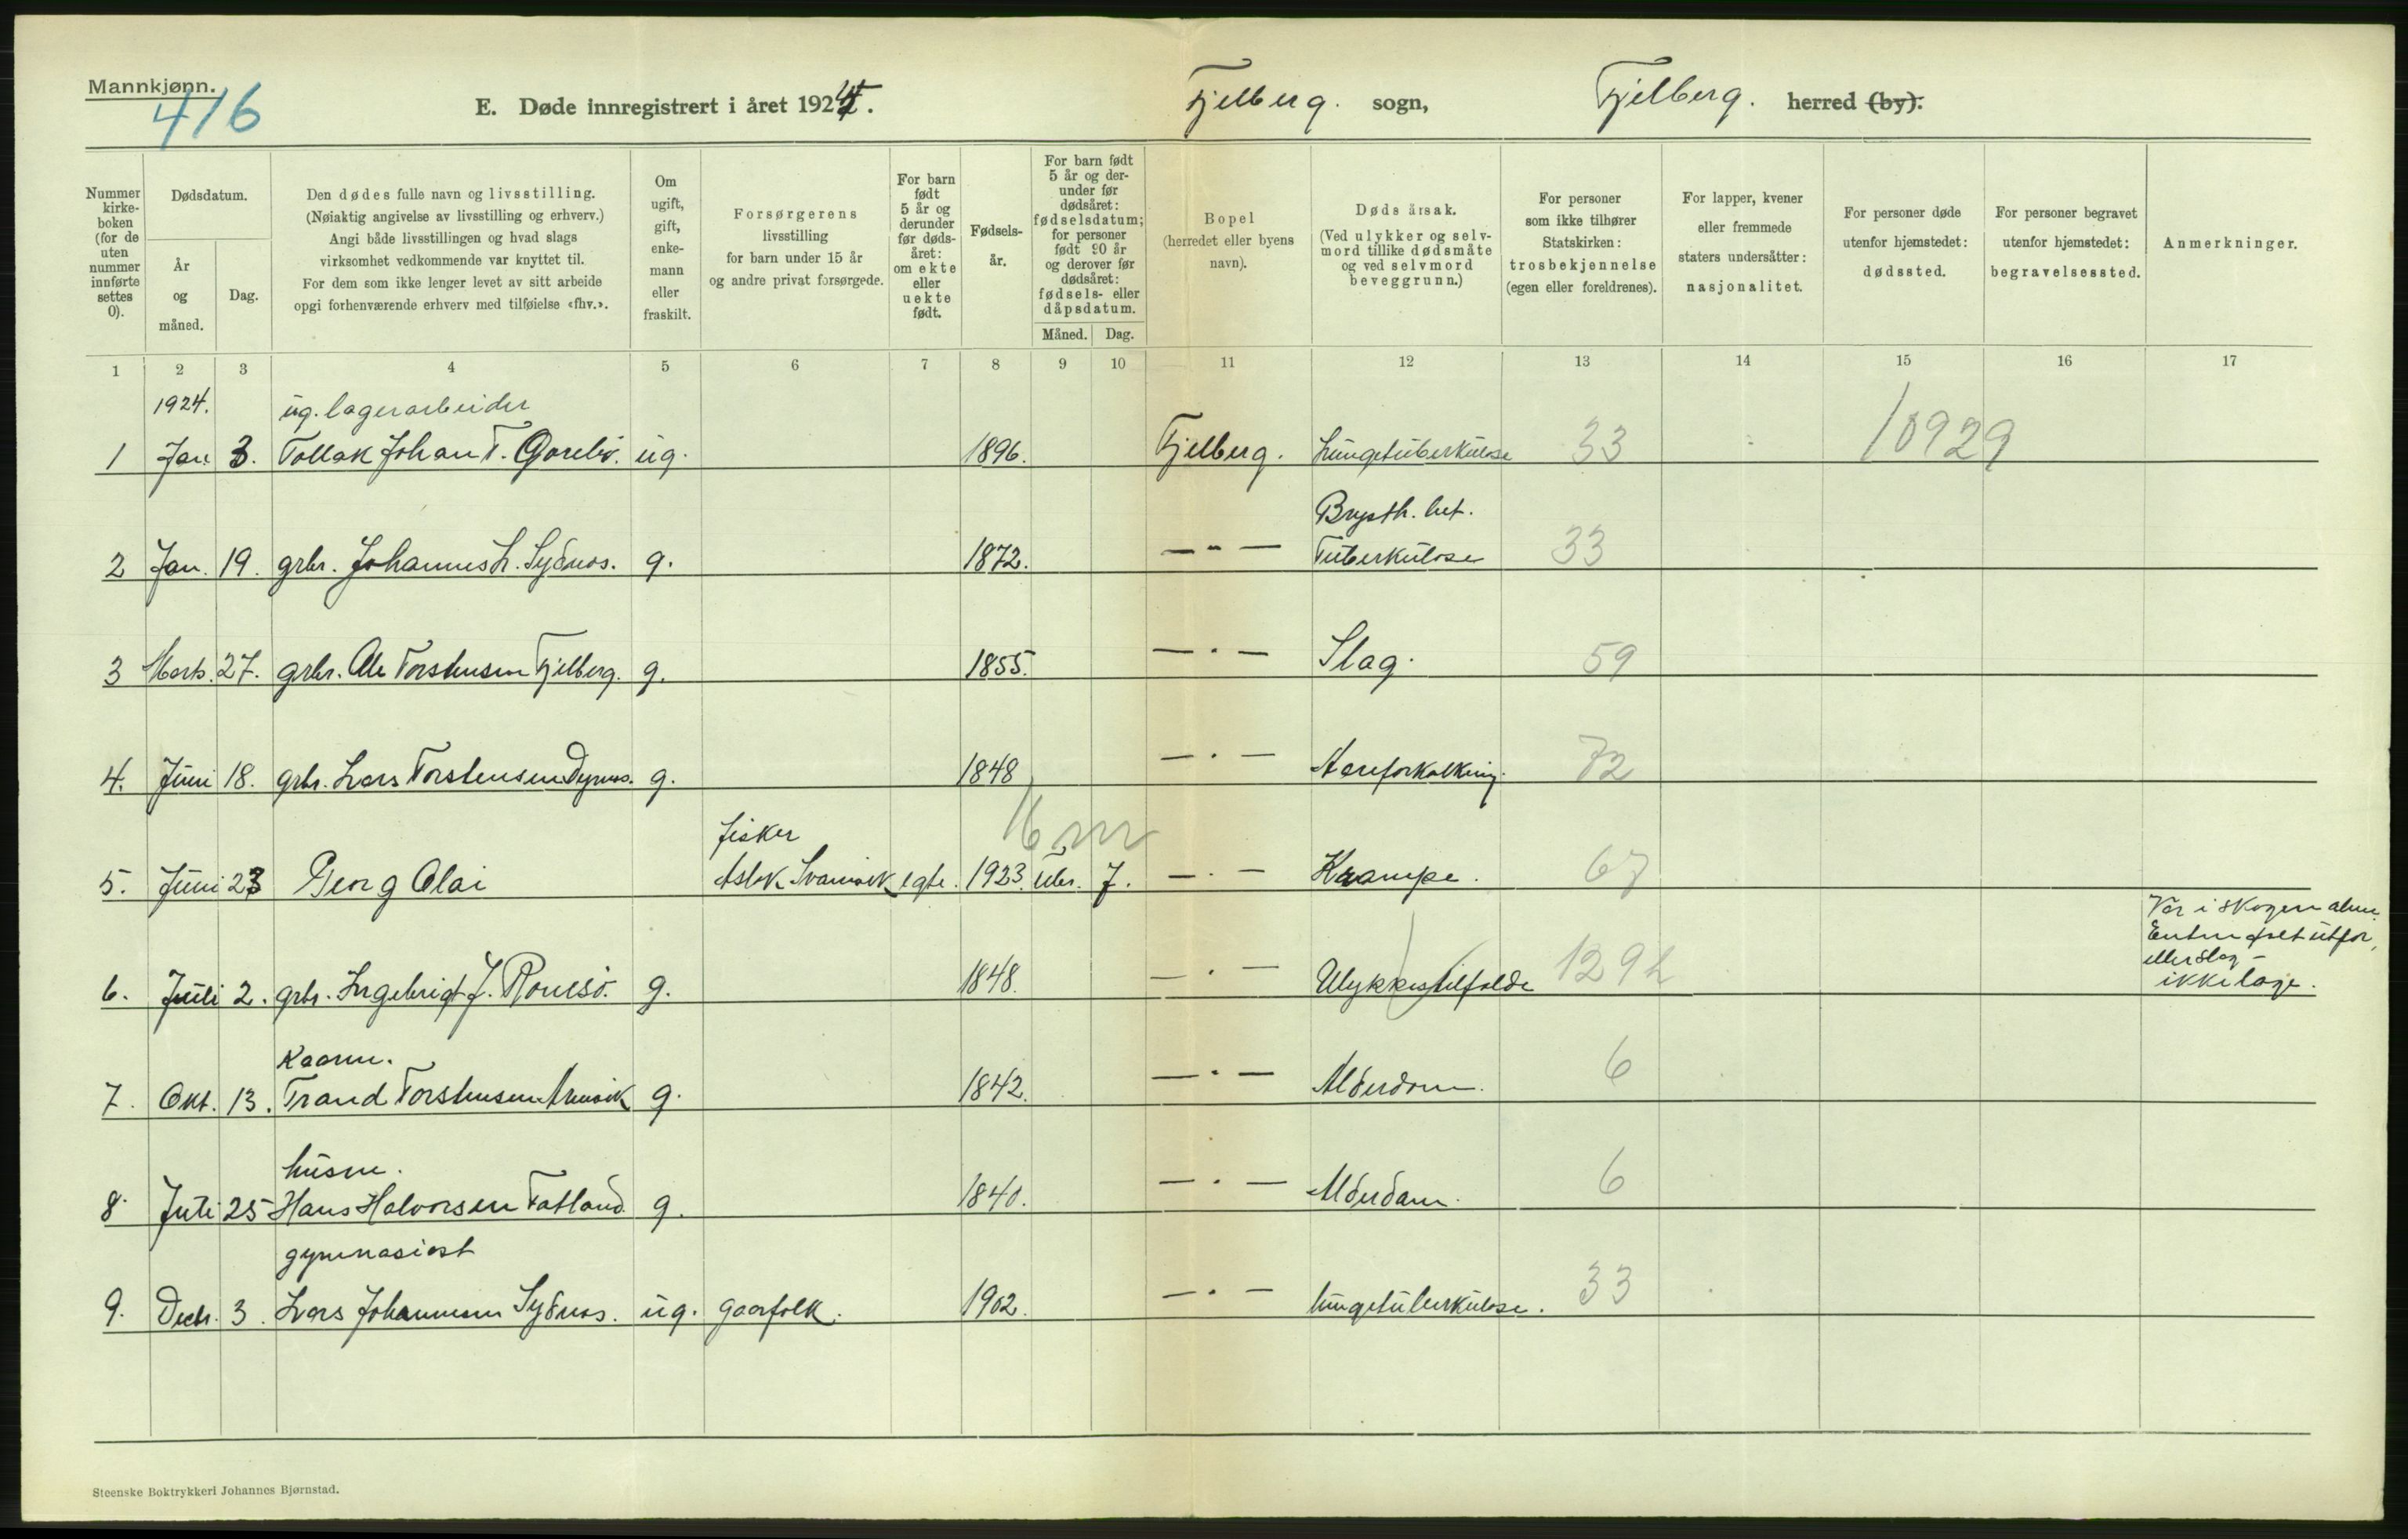 Mannkjønn.
416
E. Døde innregistrert i året 1924.
Fjelberg. sogn, Fjelberg. herred (by).
Nummer kirke-boken (for de uten nummer innførte settes 0).
Dødsdatum.
År og måned.
Dag.
Den dødes fulle navn og livsstilling.
(Nøiaktig angivelse av livsstilling og erhverv.)
Angi både livsstillingen og hvad slags
virksomhet vedkommende var knyttet til.
For dem som ikke lenger levet av sitt arbeide
opgi forhenværende erhverv med tilføielse «fhv.».
Om ugift, gift, enke-mann eller fraskilt.
Forsørgerens
livsstilling
for barn under 15 år
og andre privat forsørgede.
For barn født 5 år og derunder før døds-året: om ekte eller uekte født.
Fødsels-år.
For barn født 5 år og der-under før dødsåret: fødselsdatum; for personer født 90 år og derover før dødsåret: fødsels- eller dåpsdatum.
Måned. Dag.
Bopel
(herredet eller byens navn).
Dødsårsak.
(Ved ulykker og selv-mord tillike dødsmåte og ved selvmord beveggrunn.)
For personer som ikke tilhører Statskirken: trosbekjennelse (egen eller foreldrenes).
For lapper, kvener eller fremmede staters undersåtter: nasjonalitet.
For personer døde utenfor hjemstedet: dødssted.
For personer begravet utenfor hjemstedet: begravelsessted.
Anmerkninger.
1 2 3 4 5 6 7 8 9 10 11 12 13 14 15 16 17
1924. ug. lagerarbeider
1 Jan. 3. Tollak Johan T. ug. 1896. Fjelberg. Lungetuberkulose 33 10929
Brysth. bet.
2 Jan. 19. grbr. Johannes L. Sydnes. g. 1872. — " — Tuberkulose 33
3 Marts. 27. grbr. Ole Torstensen Fjelberg. g. 1855. — " — Slag. 59
4. Juni 18. grbr. Lars Torstensen g. 1848 — " — Aareforkalkning. 72
fisker 16 m
5. Juni 23 Georg Olai Aslak egte. 1923. 7. — " — Krampe. 67
Var i skogen alene.
Enten falt utfor,
eller slag –
6. Juli 2. grbr. Ingebrigt J. g. 1848. — " — Ulykkestilfelde 129 ikke læge.
Kaarm.
7. Okt. 13. Trand Torstensen g. 1842. — " — Alderdom. 6
husm.
8. Juli 25 Hans Halvorsen Fatland. g. 1840. — " — Alderdom. 6
gymnasiast
9. Decbr. 3. Lars Johannesen Sydnes. ug. gaarfolk. 1902. — " — lungetuberkulose. 33
Steenske Boktrykkeri Johannes Bjørnstad.